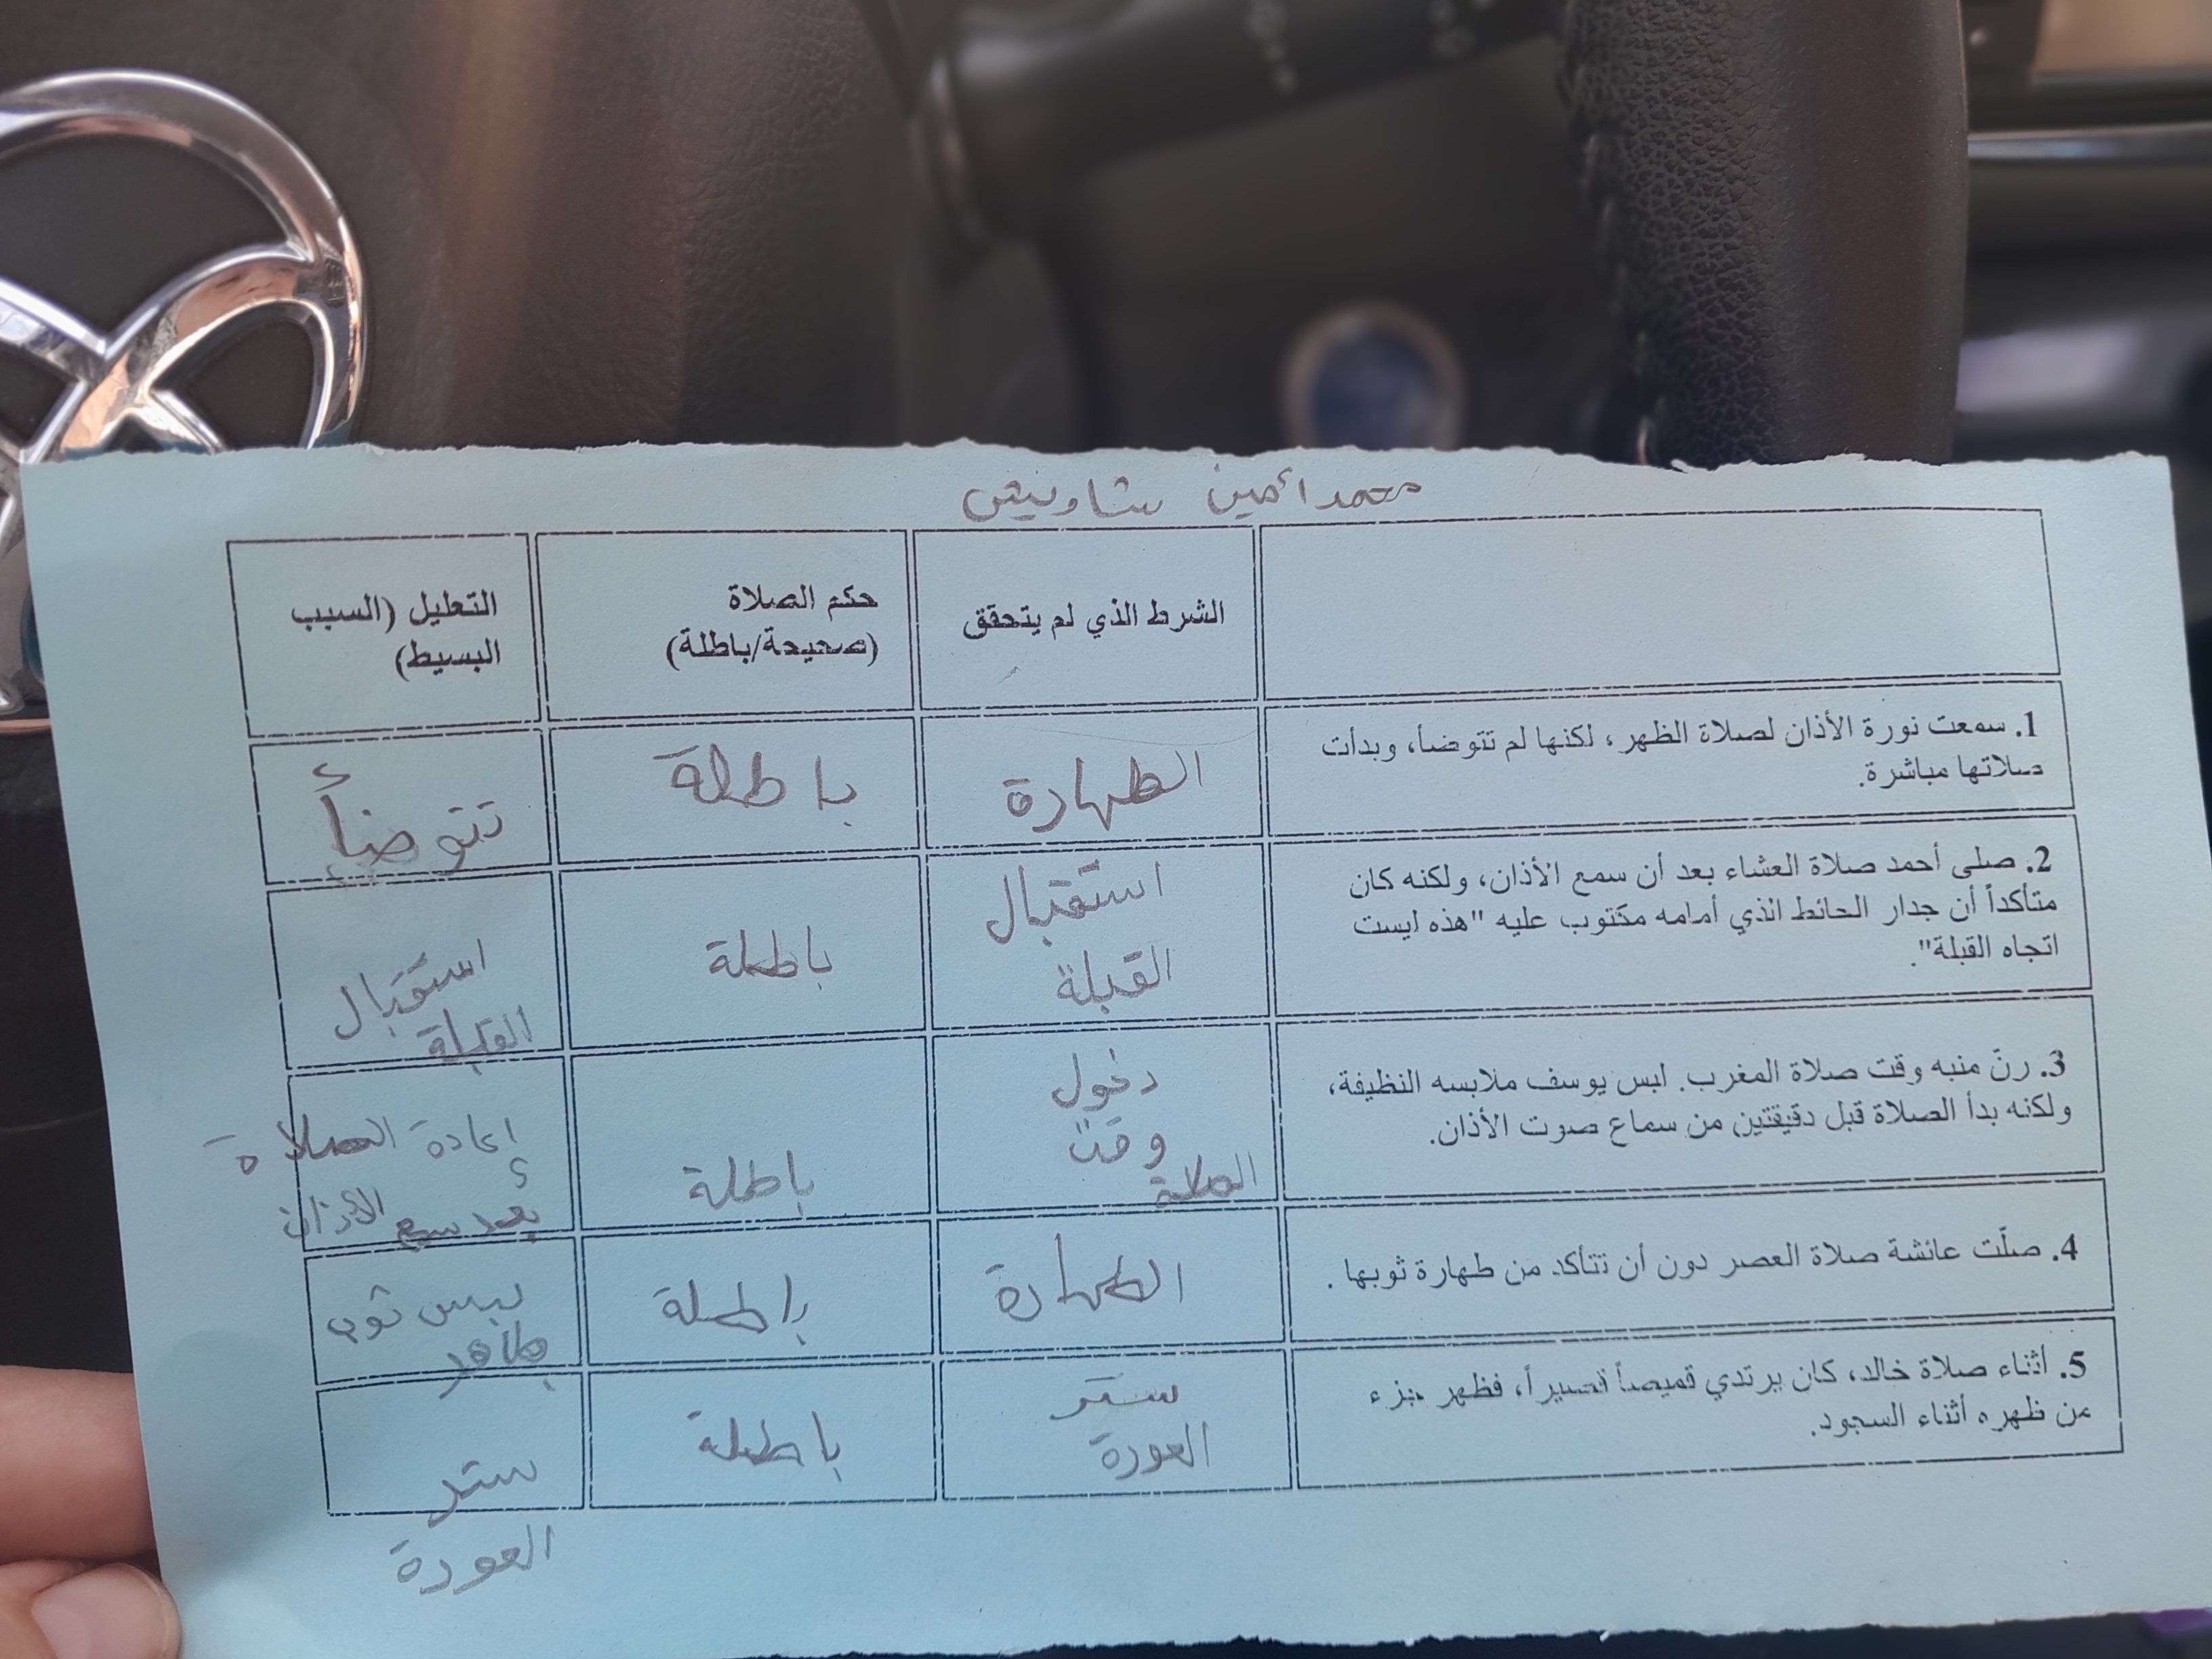 محمد أمين شاويش
الشرط الذي لم يتحقق
حكم الصلاة
(صحيحة/باطلة)
التعليل (السبب
البسيط)
1. سمعت نورة الأذان لصلاة الظهر، لكنها لم تتوضأ، وبدأت
صلاتها مباشرة.
الطهارة
باطلة
تتوضأ
2. صلى أحمد صلاة العشاء بعد أن سمع الأذان، ولكنه كان
متأكداً أن جدار الحائط الذي أمامه مكتوب عليه "هذه ليست
اتجاه القبلة".
استقبال
القبلة
باطلة
استقبال
القبلة
3. رنّ منبه وقت صلاة المغرب. لبس يوسف ملابسه النظيفة،
ولكنه بدأ الصلاة قبل دقيقتين من سماع صوت الأذان.
دخول
وقت
الصلاة
باطلة
إعادة الصلاة
بعد سمع الأذان
4. صلّت عائشة صلاة العصر دون أن تتأكد من طهارة ثوبها .
الطهارة
باطلة
لبس ثوب
طاهر
5. أثناء صلاة خالد، كان يرتدي قميصاً قصيراً، فظهر جزء
من ظهره أثناء السجود.
ستر
العورة
باطلة
ستر
العورة